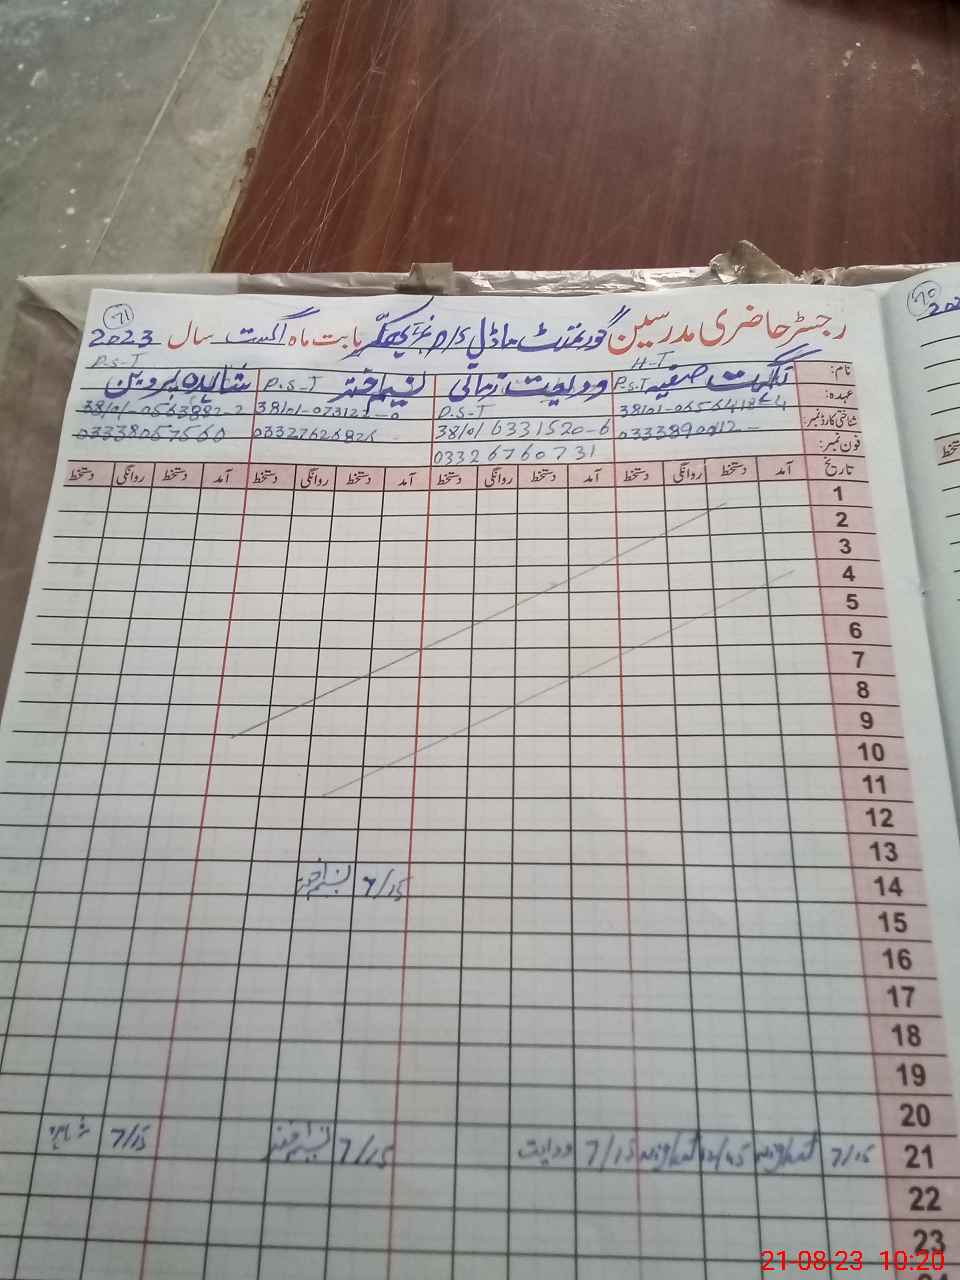 71
70
رجسٹر حاضری مدرسین گورنمنٹ ماڈل P/S نمبر بھکر بابت ماہ اگست سال 2023
نام: نگہت صفیہ ودیعت زمانی نسیم اختر شاہدہ پروین
عہدہ: H-T P.S.T P.S-T P.S-T P-S-T
شناختی کارڈ نمبر: 38101 6331520-6
فون نمبر: 03326760731 03338057560
تاریخ آمد دستخط روانگی دستخط آمد دستخط روانگی دستخط آمد دستخط روانگی دستخط آمد دستخط روانگی دستخط
1
2
3
4
5
6
7
8
9
10
11
12
13
14 7/15 نسیم اختر
15
16
17
18
19
20
21 7/15 Nighat 12/45 Nighat 7/15 ودیعت 7/15 نسیم اختر 7/15 شاہدہ
22
23
21-08-23 10:20